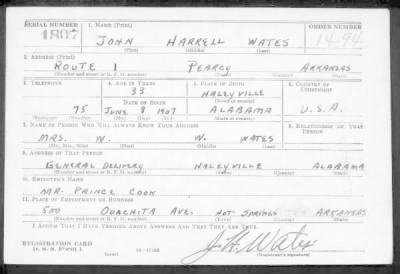 SERIAL NUMBER 1. NAME (Print) ORDER NUMBER
1807 JOHN HARRELL WATES 1494
(First) (Middle) (Last)
2. ADDRESS (Print)
ROUTE 1 PEARCY ARKANSAS
(Number and street or R. F. D. number) (Town) (County) (State)
3. TELEPHONE 4. AGE IN YEARS 5. PLACE OF BIRTH 6. COUNTRY OF CITIZENSHIP
33 HALEYVILLE
DATE OF BIRTH (Town or county)
75 JUNE 8 1907 ALABAMA U.S.A.
(Exchange) (Number) (Mo.) (Day) (Yr.) (State or country)
7. NAME OF PERSON WHO WILL ALWAYS KNOW YOUR ADDRESS 8. RELATIONSHIP OF THAT PERSON
MRS. W. W. WATES
(Mr., Mrs., Miss) (First) (Middle) (Last)
9. ADDRESS OF THAT PERSON
GENERAL DELIVERY HALEYVILLE ALABAMA
(Number and street or R. F. D. number) (Town) (County) (State)
10. EMPLOYER'S NAME
MR. PRINCE COOK
11. PLACE OF EMPLOYMENT OR BUSINESS
500 OUACHITA AVE. HOT SPRINGS ARKANSAS
(Number and street or R. F. D. number) (Town) (County) (State)
I AFFIRM THAT I HAVE VERIFIED ABOVE ANSWERS AND THAT THEY ARE TRUE.
REGISTRATION CARD
D. S. S. Form 1 (over) 16-17105 (Registrant's signature)
J H Wates